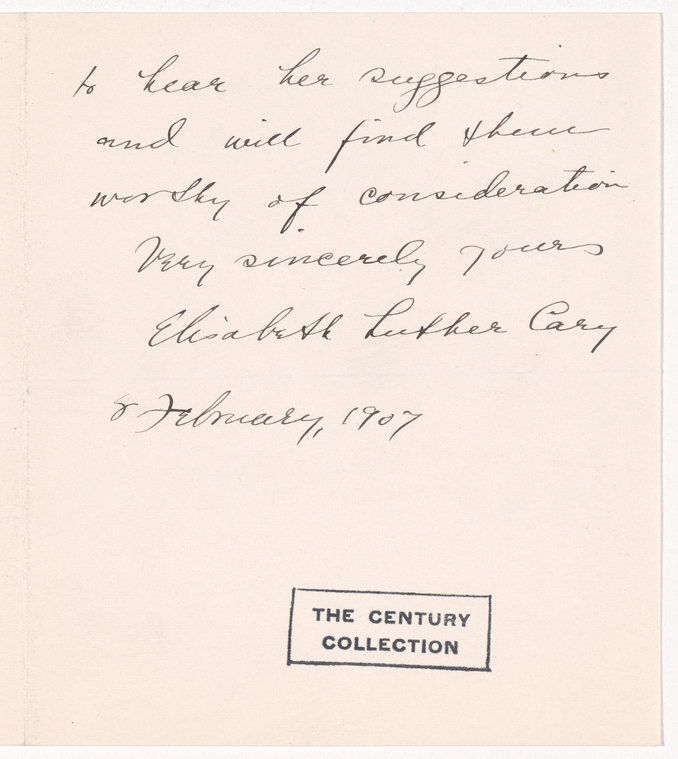 to hear her suggestions
and will find them
worthy of consideration
Very sincerely yours
Elisabeth Luther Cary
8 February, 1907
THE CENTURY
COLLECTION